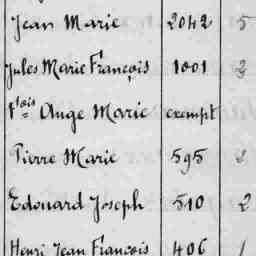 Jean Marie 2042 5
Jules Marie François 1001 2
Fçois Ange Marie exempt
Pierre Marie 595 2
Edouard Joseph 510 2
Henri Jean François 406 1